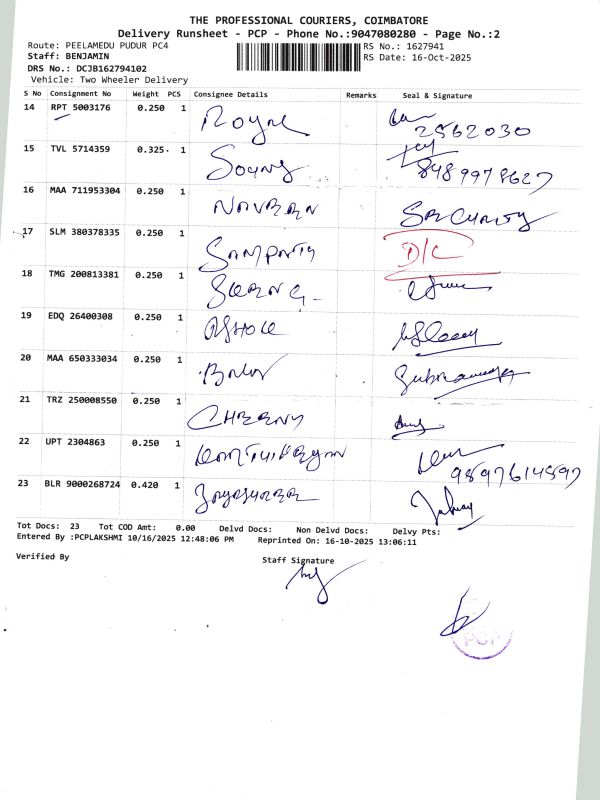 THE PROFESSIONAL COURIERS, COIMBATORE
Delivery Runsheet - PCP - Phone No.:9047080280 - Page No.:2
Route: PEELAMEDU PUDUR PC4
RS No.: 1627941
Staff: BENJAMIN
RS Date: 16-Oct-2025
DRS No.: DCJB162794102
Vehicle: Two Wheeler Delivery
S No Consignment No Weight PCS Consignee Details Remarks Seal & Signature
14 RPT 5003176 0.250 1 Royal
2562030
15 TVL 5714359 0.325 1
16 MAA 711953304 0.250 1 NAVEEN SECURITY
17 SLM 380378335 0.250 1 D/C
18 TMG 200813381 0.250 1
19 EDQ 26400308 0.250 1 ASHOK
20 MAA 650333034 0.250 1
21 TRZ 250008550 0.250 1
22 UPT 2304863 0.250 1
23 BLR 9000268724 0.420 1
Tot Docs: 23 Tot COD Amt: 0.00 Delvd Docs: Non Delvd Docs: Delvy Pts:
Entered By :PCPLAKSHMI 10/16/2025 12:48:06 PM Reprinted On: 16-10-2025 13:06:11
Verified By
Staff Signature
PCP